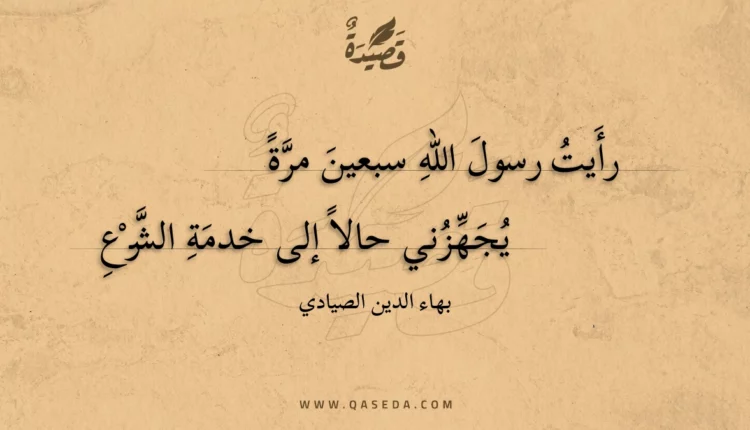 قَصِيْدَةٌ
رأَيتُ رسولَ اللهِ سبعينَ مرَّةً
يُجَهِّزُني حالاً إلى خدمَةِ الشَّرْعِ
بهاء الدين الصيادي
WWW.QASEDA.COM